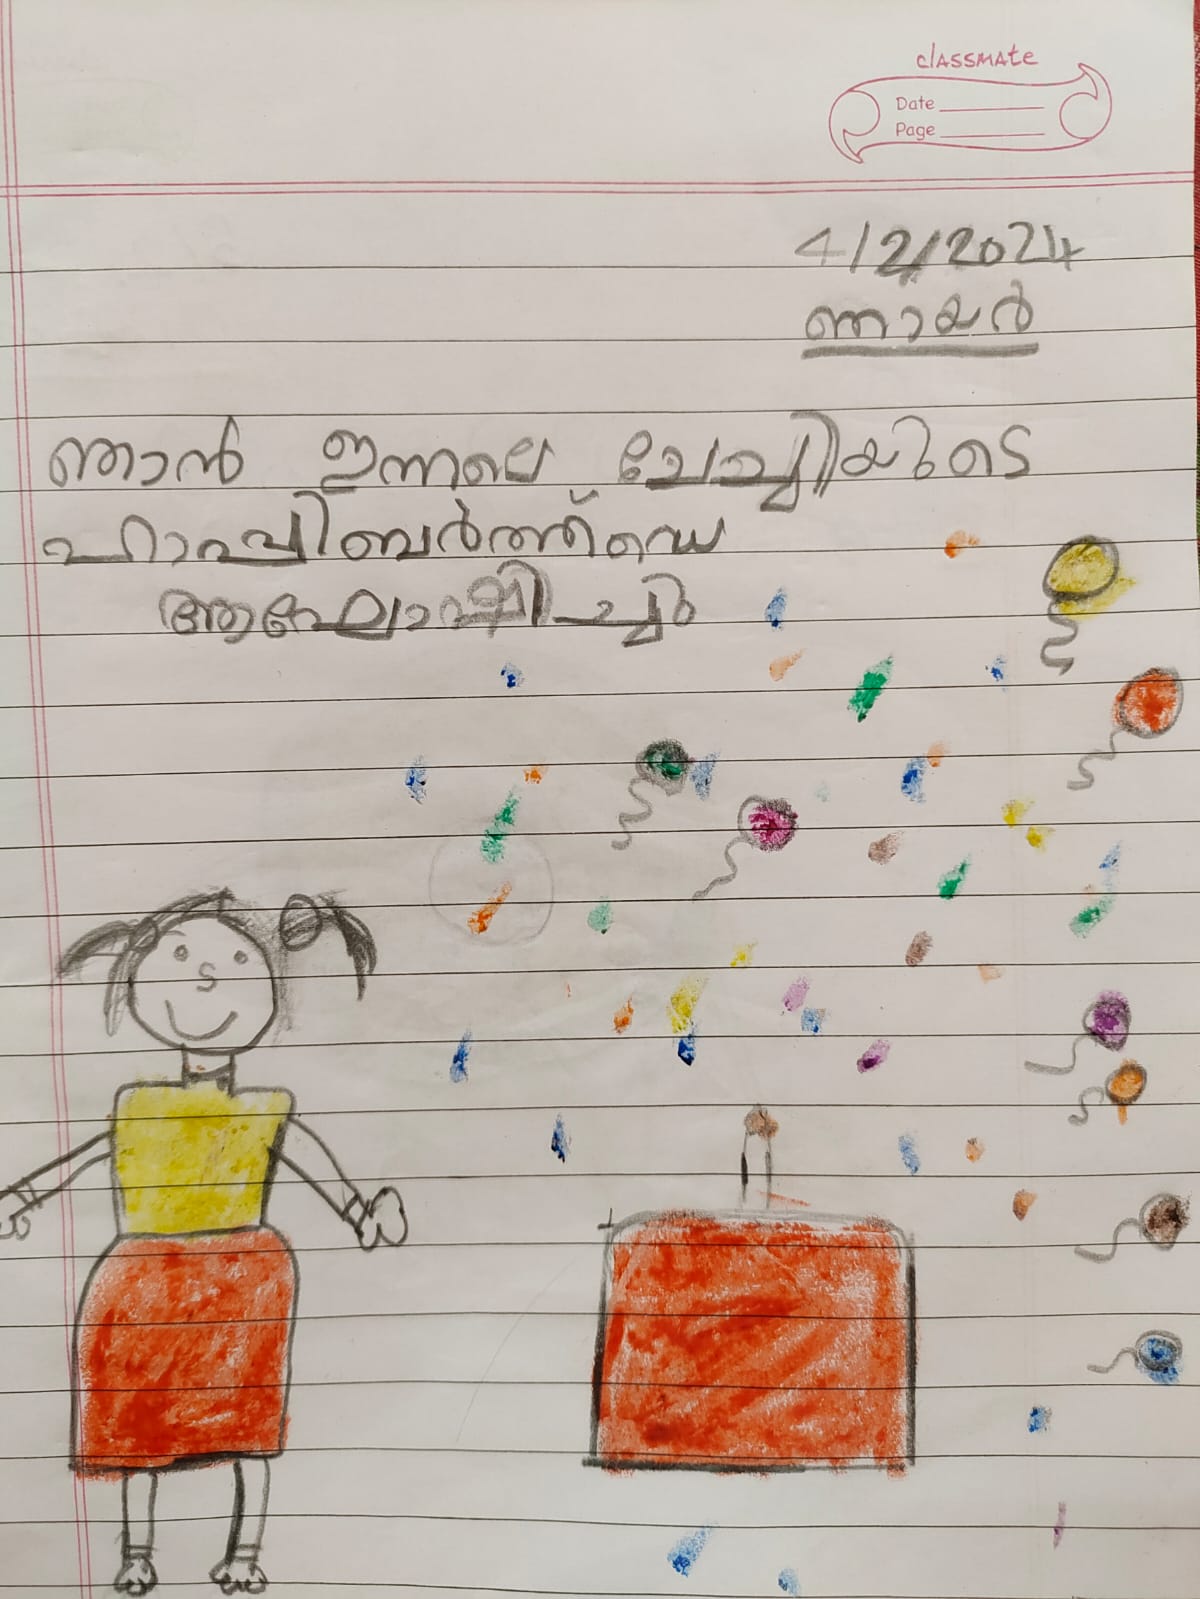 classmate
Date
Page
4/2/2024
ഞായർ
ഞാൻ ഇന്നലെ ചേച്ചിയുടെ
ഹാപ്പിബർത്ത്ഡെ
ആഘോഷിച്ചു